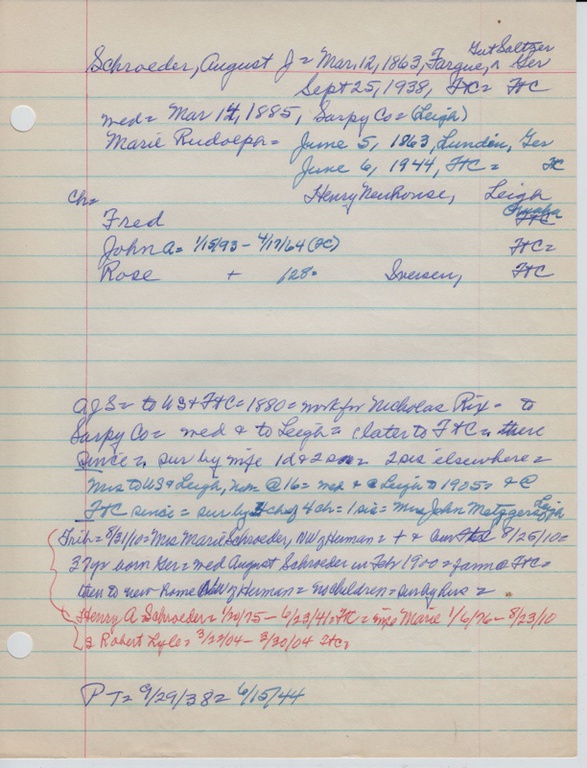 Gut Saltzer
Schroeder, August J = Mar. 12, 1863, Fargue, ^ Ger
Sept 25, 1938, FtC = FtC
med = Mar 14, 1885, Sarpy Co = (Leigh)
Marie Rudolph = June 5, 1863, Lunden, Ger
June 6, 1944, FtC = FC
Ch = Henry Neuhouse, Leigh
Omaha
Fred FtC
John A = 1/15/93 - 4/17/64 (FC) FtC =
Rose + 128 = Iversen, FtC
AJS = to US & FtC = 1880 = work for Nicholas Rix = to
Sarpy Co = med & to Leigh = later to FtC = there
since = sur by wife 1d & 2 sons = 2 sis elsewhere =
Mrs to US & Leigh, Neb @ 16 = med & @ Leigh to 1905 = & @
FtC since = sur by 4ch = 1 sis = Mrs John Metzger Leigh
Trib = 8/31/10 = Mrs Marie Schroeder, NW of Human = + & bur 8/25/10 =
37yr born Ger = med August Schroeder in Feb 1900 = farm @ FtC =
then to new home NW of Human = no children = sur by hus =
Henry A Schroeder = 1/30/75 - 6/23/41 = FtC = wife Marie 1/6/76 - 8/23/10
& Robert Lyle = 3/22/04 - 3/30/04 FtC =
PT = 9/29/38 = 6/15/44